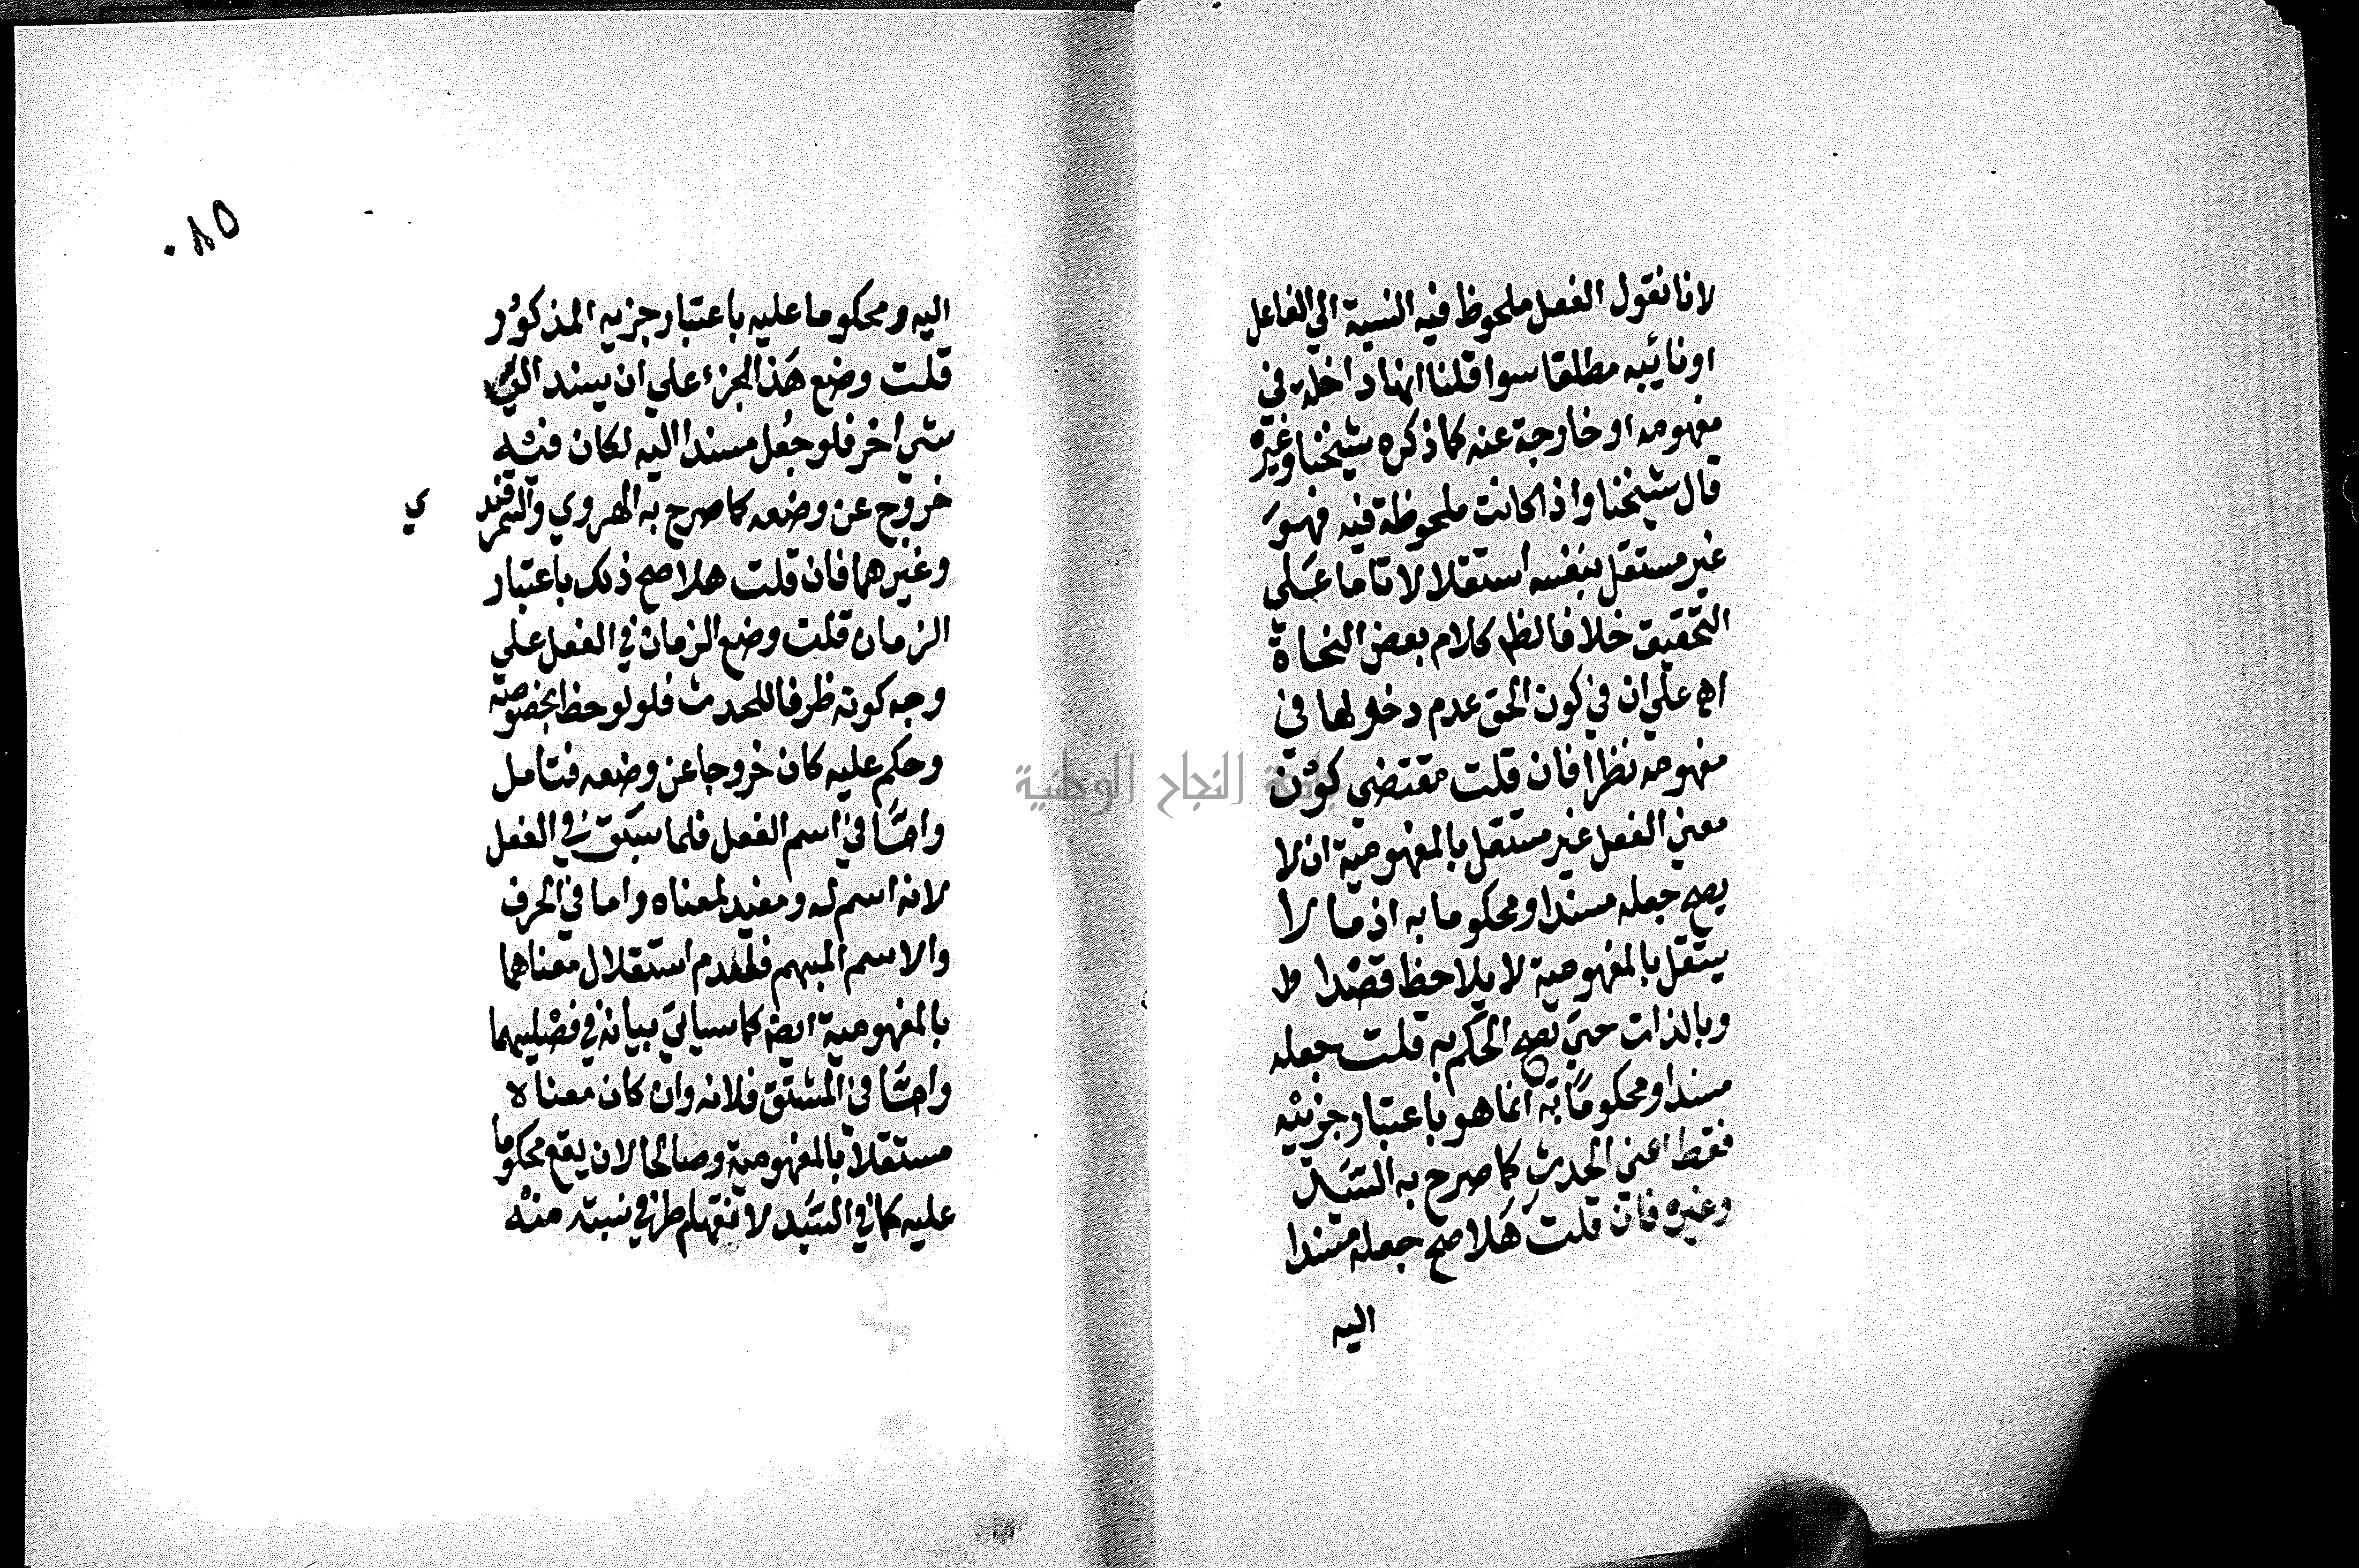 لانا نقول الفعل ملحوظ فيه النسبة الي الفاعل
او نائبه مطلقا سوا قلنا انها داخلة في
مفهومه او خارجة عنه كما ذكره شيخنا وغيره
قال شيخنا واذا كانت ملحوظة فيه فهو
غير مستقل بنفسه استقلالا تاما علي
التحقيق خلافا لظ كلام بعض النحاة
اه علي ان في كون الحق عدم دخولها في
مفهومه نظرا فان قلت مقتضي كون
معني الفعل غير مستقل بالمفهومية ان لا
يصح جعله مسندا ومحكوما به اذ ما لا
يستقل بالمفهومية لا يلاحظ قصدا
وبالذات حتي يصح الحكم به قلت جعله
مسندا ومحكوما به انما هو باعتبار جزئيه
فقط اعني الحدث كما صرح به السيد
وغيره فان قلت هلا صح جعله مسندا
اليه
٨٥
اليه ومحكوما عليه باعتبار جزيه المذكور
قلت وضع هذا الجزء علي ان يسند الي
شي اخر فلو جعل مسندا اليه لكان فيه
خروج عن وضعه كما صرح به الهروي والسمرقند
ي
وغيرهما فان قلت هلا صح ذلك باعتبار
الزمان قلت وضع الزمان في الفعل علي
وجه كونه ظرفا للحدث فلو لوحظ بخصوصه
وحكم عليه كان خروجا عن وضعه فتامل
واما في اسم الفعل فلما سبق في الفعل
لانه اسم له ومفيد لمعناه واما في الحرف
والاسم المبهم فلعدم استقلال معناهما
بالمفهومية ايضا كما سياتي بيانه في فصليهما
واما في المشتق فلانه وان كان معناه
مستقلا بالمفهومية وصالحا لان يقع محكوما
عليه كما في السيد لانفهام طرفي نسبته منه
جامعة النجاح الوطنية